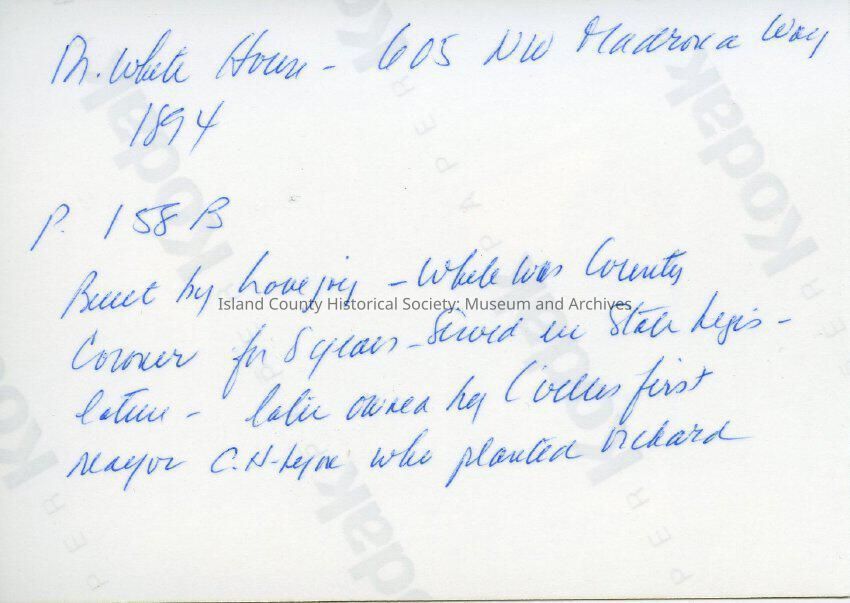 Dr. White House - 605 NW Madrona Way
1894
P. 158 B
Built by Lovejoy - White was County
Island County Historical Society: Museum and Archives
Coroner for 8 years - Served in State Legis-
lature - later owned by first
mayor C.H. who planted orchard
Kodak
PAPER